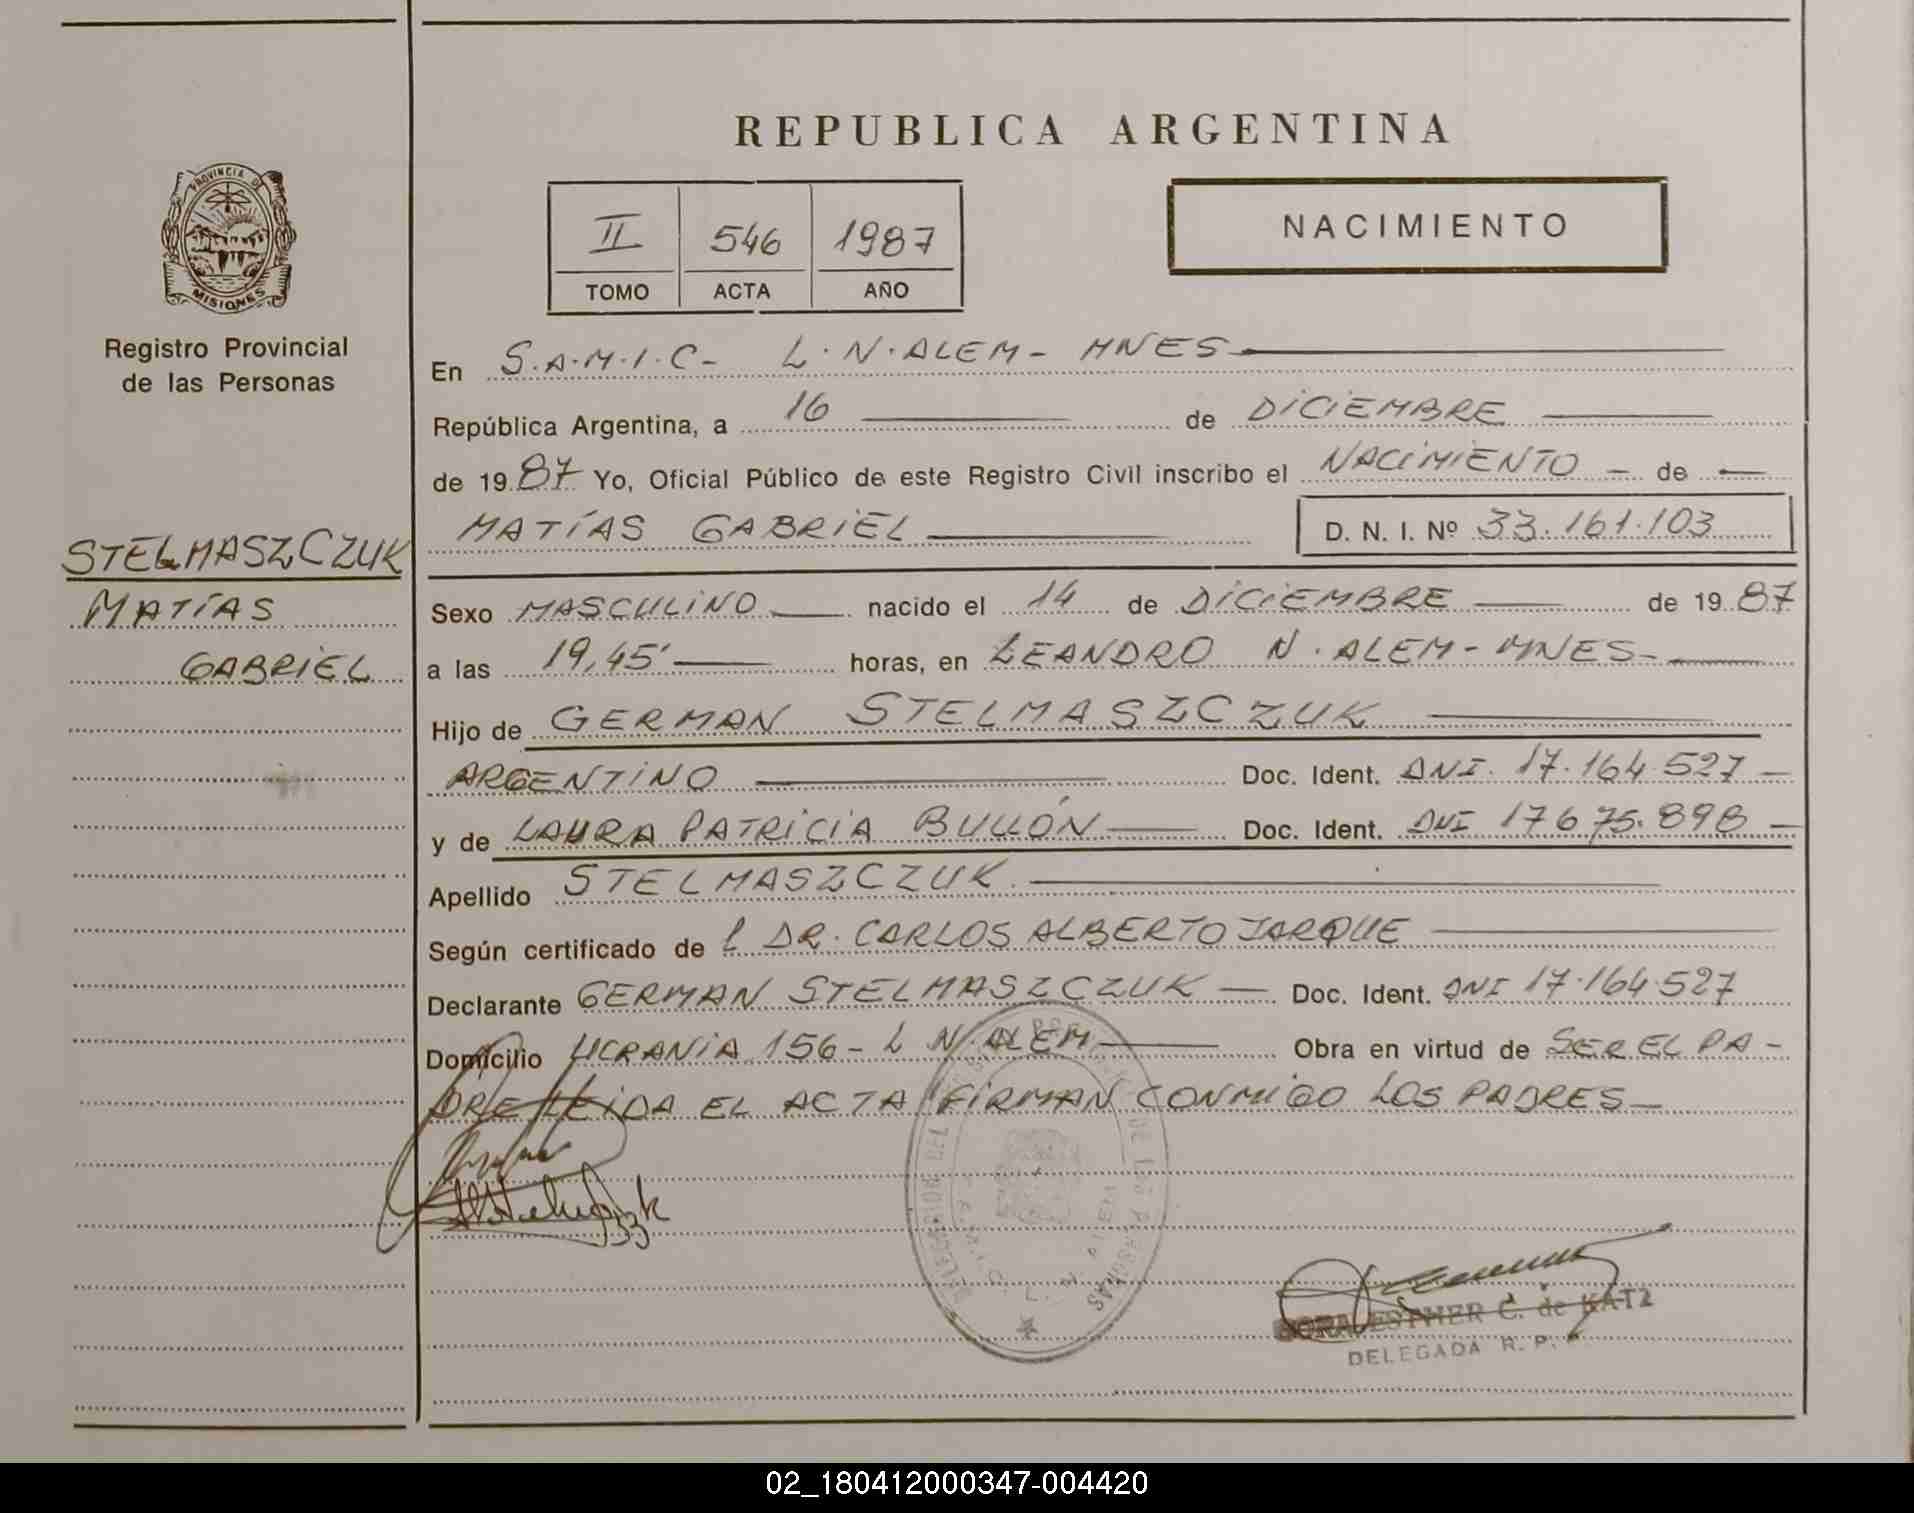 REPUBLICA ARGENTINA
PROVINCIA DE
MISIONES
Registro Provincial
de las Personas
II 546 1987
TOMO ACTA AÑO
NACIMIENTO
En S.A.M.I.C- L.N.ALEM- MNES
República Argentina, a 16 de DICIEMBRE
de 1987 Yo, Oficial Público de este Registro Civil inscribo el NACIMIENTO - de
MATÍAS GABRIEL D. N. I. Nº 33.161.103
STELMASZCZUK
MATÍAS
GABRIEL
Sexo MASCULINO nacido el 14 de DICIEMBRE de 1987
a las 19,45' horas, en LEANDRO N. ALEM- MNES-
Hijo de GERMAN STELMASZCZUK
ARGENTINO Doc. Ident. DNI. 17.164.527 -
y de LAURA PATRICIA BULLÓN Doc. Ident. DNI 17675.898 -
Apellido STELMASZCZUK.
Según certificado de l DR. CARLOS ALBERTO JARQUE
Declarante GERMAN STELMASZCZUK - Doc. Ident. DNI 17.164.527
Domicilio UCRANIA 156- L N.ALEM Obra en virtud de SER EL PA-
DRE LEIDA EL ACTA FIRMAN CONMIGO LOS PADRES-
DELEGACION DEL DE LAS PERSONAS
ESTHER C. de KATZ
DELEGADA R. P.
02_180412000347-004420